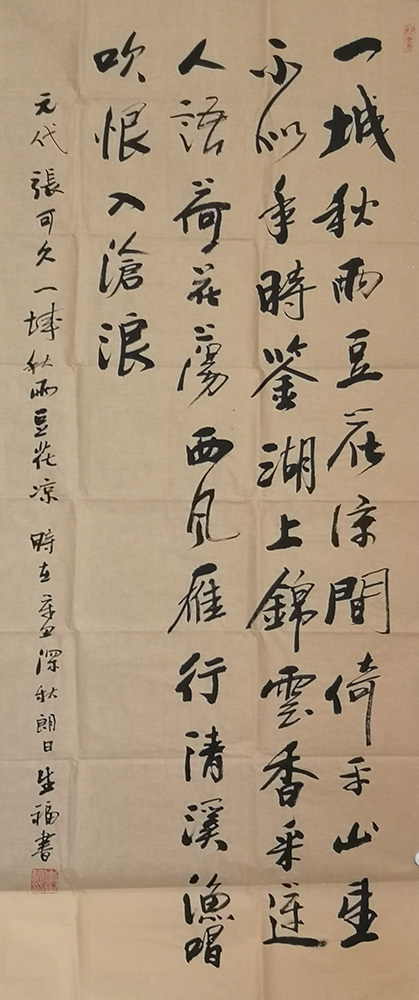 一城秋雨豆花凉間倚平山望
不似年時鑒湖上錦雲香采蓮
人語荷花蕩西風雁行清溪漁唱
吹恨入滄浪
元代張可久一城秋雨豆花凉 時在辛丑深秋朗日生福書